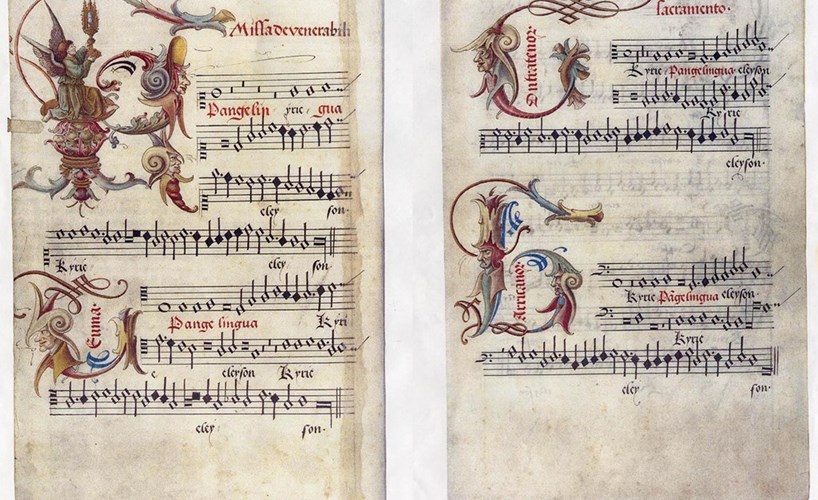 Missa de venerabili
Pange lin yrie gua
eley son.
Kyrie eley son.
Pange lingua Kyri
e eleyson Kyrie
eley son.
sacramento.
Kyrie Pange lingua eleyson
Kyrie
eleyson.
Kyrie Pāge lingua eleyson.
Kyrie
eley son.